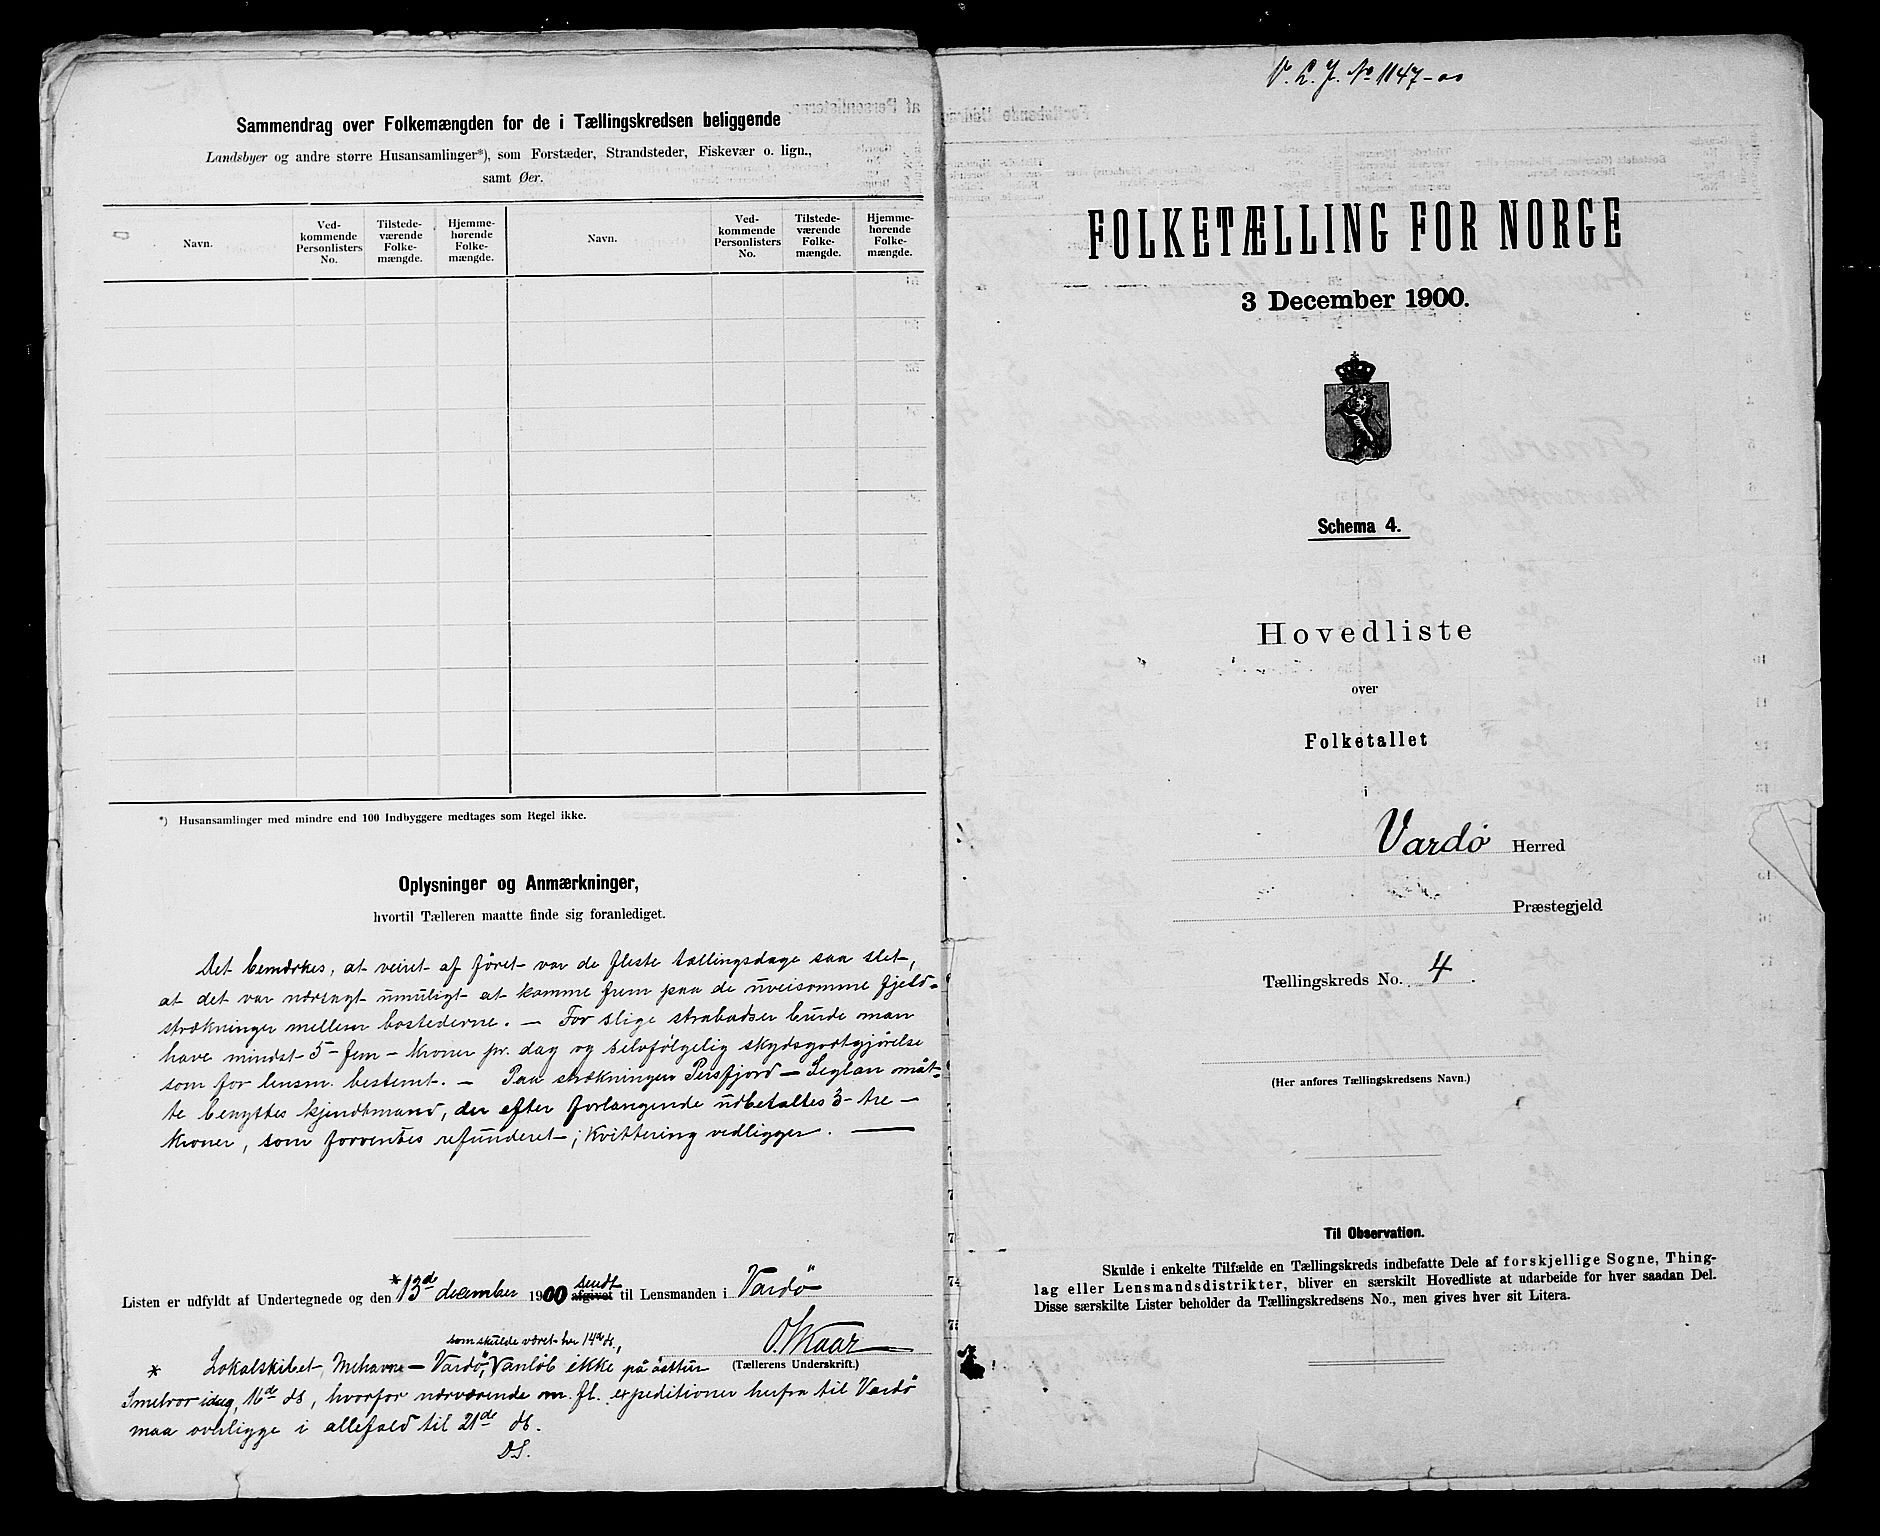 Sammendrag over Folkemængden for de i Tællingskredsen beliggende
Landsbyer og andre større Husansamlinger*), som Forstæder, Strandsteder, Fiskevær o. lign.,
samt Øer.
Navn.
Ved-
kommende
Personlisters
No.
Tilstede-
værende
Folke-
mængde.
Hjemme-
hørende
Folke-
mængde.
Navn.
Ved-
kommende
Personlisters
No.
Tilstede-
værende
Folke-
mængde.
Hjemme-
hørende
Folke-
mængde.
*) Husansamlinger med mindre end 100 Indbyggere medtages som Regel ikke.
Oplysninger og Anmærkninger,
hvortil Tælleren maatte finde sig foranlediget.
Det bemærkes, at veiret af føret var de fleste tællingsdage saa slet,
at det var næsagt umuligt at komme frem paa de uveisomme fjeld-
strækninger mellem bostederne. — For slige strabadser burde man
have mindst 5 - fem - kroner pr. dag og selvfølgelig skydsgodtgjørelse
som for lensm. bestemt. — Paa strækningen Persfjord - Seglan måt-
te benyttes kjendtmand, der efter forlangende udbetaltes 3 - tre -
kroner, som forventes refunderet; kvittering vedligger. —
Listen er udfyldt af Undertegnede og den *13d december 1900 afgivet sendt til Lensmanden i Vardø
O. Maar
(Tællerens Underskrift.)
som skulde været her 14de ds,
* Lokalskibet, Mehavn - Vardø, anløb ikke på østtur
Smelror idag, 16de ds, hvorfor nærværende m. fl. expeditioner herfra til Vardø
maa overligge i allefald til 21de ds.
D.S.
V. L. J. No 1147-00
FOLKETÆLLING FOR NORGE
3 December 1900.
Schema 4.
Hovedliste
over
Folketallet
i
Vardø Herred
Præstegjeld
Tællingskreds No. 4.
(Her anføres Tællingskredsens Navn.)
Til Observation.
Skulde i enkelte Tilfælde en Tællingskreds indbefatte Dele af forskjellige Sogne, Thing-
lag eller Lensmandsdistrikter, bliver en særskilt Hovedliste at udarbeide for hver saadan Del.
Disse særskilte Lister beholder da Tællingskredsens No., men gives hver sit Litera.